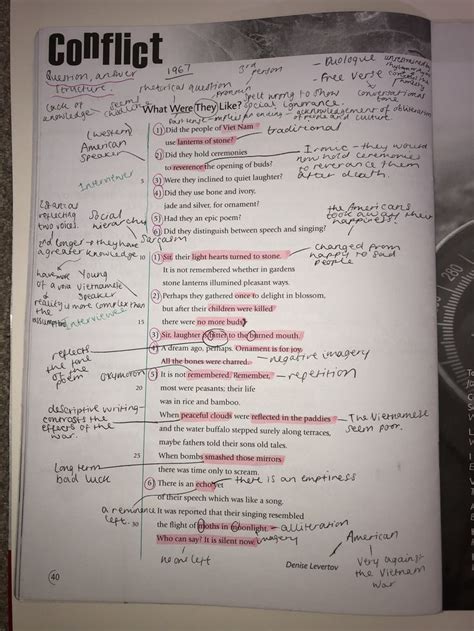 Conflict
Question, answer
structure.
1967
3rd
person
Duologue
Free Verse
conversational
tone
rhetorical question
pronoun
Lack of
knowledge
What Were They Like?
social ignorance
(western)
American
speaker
1) Did the people of Viet Nam
use lanterns of stone?
traditional
2) Did they hold ceremonies
to reverence the opening of buds?
Ironic - they would
now hold ceremonies
to reverance them
after death.
Interviewer
3) Were they inclined to quiet laughter?
4) Did they use bone and ivory,
jade and silver, for ornament?
5) Had they an epic poem?
6) Did they distinguish between speech and singing?
the Americans
took away their
happiness!
2 stanzas
reflecting
two voices.
Social
hierarchy
Sarcasm
2nd longer → they have
a greater knowledge
1) Sir, their light hearts turned to stone.
It is not remembered whether in gardens
stone lanterns illumined pleasant ways.
changed from
happy to sad
people
have more
of a voice
Young
Vietnamese
Speaker
reality is more complex than
the assumption
interviewee
2) Perhaps they gathered once to delight in blossom,
but after their children were killed
15
there were no more buds.
3) Sir, laughter is bitter to the burned mouth.
4) A dream ago, perhaps. Ornament is for joy.
All the bones were charred.
negative imagery
reflects
the tone
of the
poem
oxymoron
5) It is not remembered. Remember,
repetition
20
most were peasants; their life
was in rice and bamboo.
descriptive writing-
contrasts the
effects of the
war.
When peaceful clouds were reflected in the paddies
and the water buffalo stepped surely along terraces,
maybe fathers told their sons old tales.
The Vietnamese
seem poor.
25
When bombs smashed those mirrors
there was time only to scream.
long term
bad luck
6) There is an echo yet
there is an emptiness
of their speech which was like a song.
a reminance
left.
It was reported that their singing resembled
30
the flight of moths in moonlight.
alliteration
Who can say? It is silent now.
imagery
no one left
American
Denise Levertov
Very against
the Vietnam
war
40